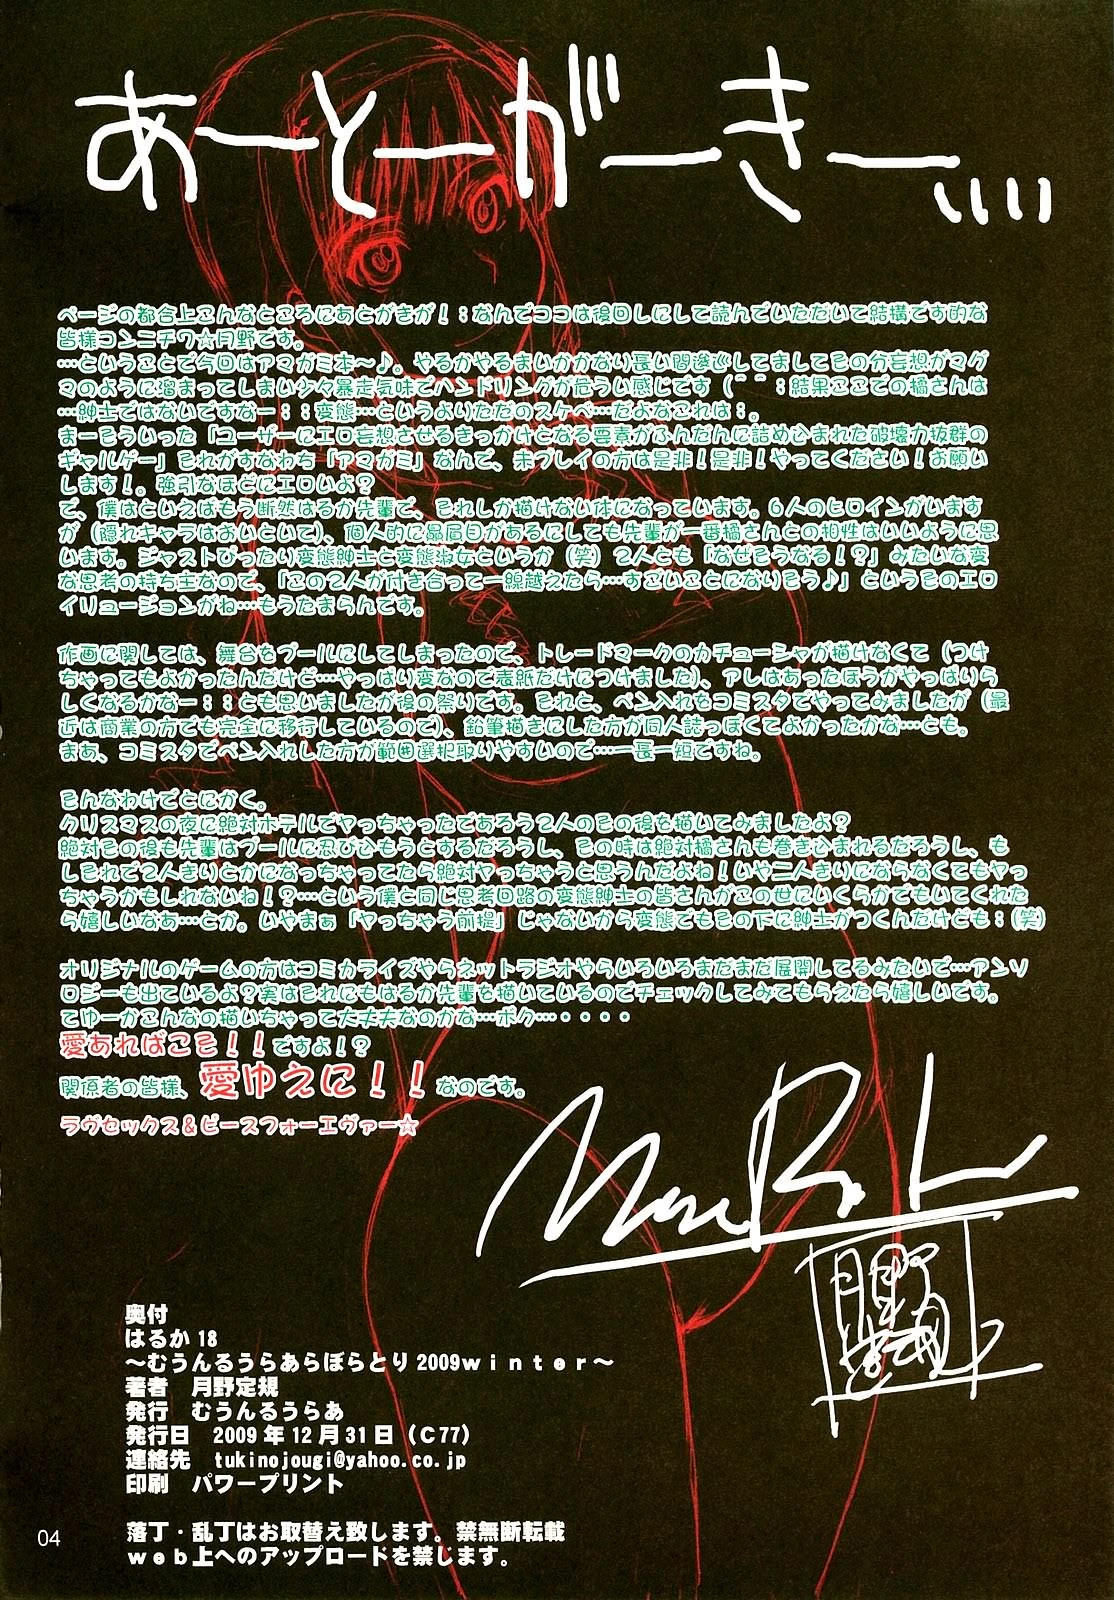 あーとーがーきー、、、、
ページの都合上こんなところにあとがきが！；なんでココは後回しにして読んでいただいて結構です的な
皆様コンニチワ☆月野です。
…ということで今回はアマガミ本～♪。やるかやるまいかかなり長い間逡巡してましてその分妄想がマグ
マのように溜まってしまい少々暴走気味でハンドリングが危うい感じです（＾＾；結果ここでの橘さんは
…紳士ではないですなー；；変態…というよりただのスケベ…だよなこれは；。
まーそういった「ユーザーにエロ妄想させるきっかけとなる要素がふんだんに詰め込まれた破壊力抜群の
ギャルゲー」それがすなわち「アマガミ」なんで、未プレイの方は是非！是非！やってください！お願い
します！。強引なほどにエロいよ？
で、僕はといえばもう断然はるか先輩で、それしか描けない体になっています。６人のヒロインがいます
が（隠れキャラはおいといて）、個人的に贔屓目があるにしても先輩が一番橘さんとの相性はいいように思
います。ジャストぴったり変態紳士と変態淑女というか（笑）２人とも「なぜそうなる！？」みたいな変
な思考の持ち主なので、「この２人が付き合って一線越えたら…すごいことになりそう♪」というそのエロ
イリュージョンがね…もうたまらんです。
作画に関しては、舞台をプールにしてしまったので、トレードマークのカチューシャが描けなくて（つけ
ちゃってもよかったんだけど…やっぱり変なので表紙だけにつけました）、アレはあったほうがやっぱりら
しくなるかなー；；とも思いましたが後の祭りです。それと、ペン入れをコミスタでやってみましたが（最
近は商業の方でも完全に移行しているので）、鉛筆描きにした方が同人誌っぽくてよかったかな…とも。
まあ、コミスタでペン入れした方が範囲選択取りやすいので…一長一短ですね。
そんなわけでとにかく。
クリスマスの夜に絶対ホテルでヤっちゃったであろう２人のその後を描いてみましたよ？
絶対その後も先輩はプールに忍びひもうとするだろうし、その時は絶対橘さんも巻きひまれるだろうし、も
しそれで２人きりとかになっちゃってたら絶対ヤっちゃうと思うんだよね！いや二人きりにならなくてもヤっ
ちゃうかもしれないね！？…という僕と同じ思考回路の変態紳士の皆さんがこの世にいくらかでもいてくれた
ら嬉しいなあ…とか。いやまぁ「ヤっちゃう前提」じゃないから変態でもその下に紳士がつくんだけども；（笑）
オリジナルのゲームの方はコミカライズやらネットラジオやらいろいろまだまだ展開してるみたいで…アンソ
ロジーも出ているよ？実はそれにもはるか先輩を描いているのでチェックしてみてもらえたら嬉しいです。
てゆーかこんなの描いちゃって大丈夫なのかな…ボク…・・・・
愛あればこそ！！ですよ！？
関係者の皆様、愛ゆえに！！なのです。
ラヴセックス＆ピースフォーエヴァー☆
奥付
はるか18
～むうんるうらあらぼらとり2009ｗｉｎｔｅｒ～
著者　月野定規
発行　むうんるうらあ
発行日　2009年12月31日（Ｃ77）
連絡先　tukinojougi@yahoo.co.jp
印刷　パワープリント
落丁・乱丁はお取替え致します。禁無断転載
ｗｅｂ上へのアップロードを禁じます。
04